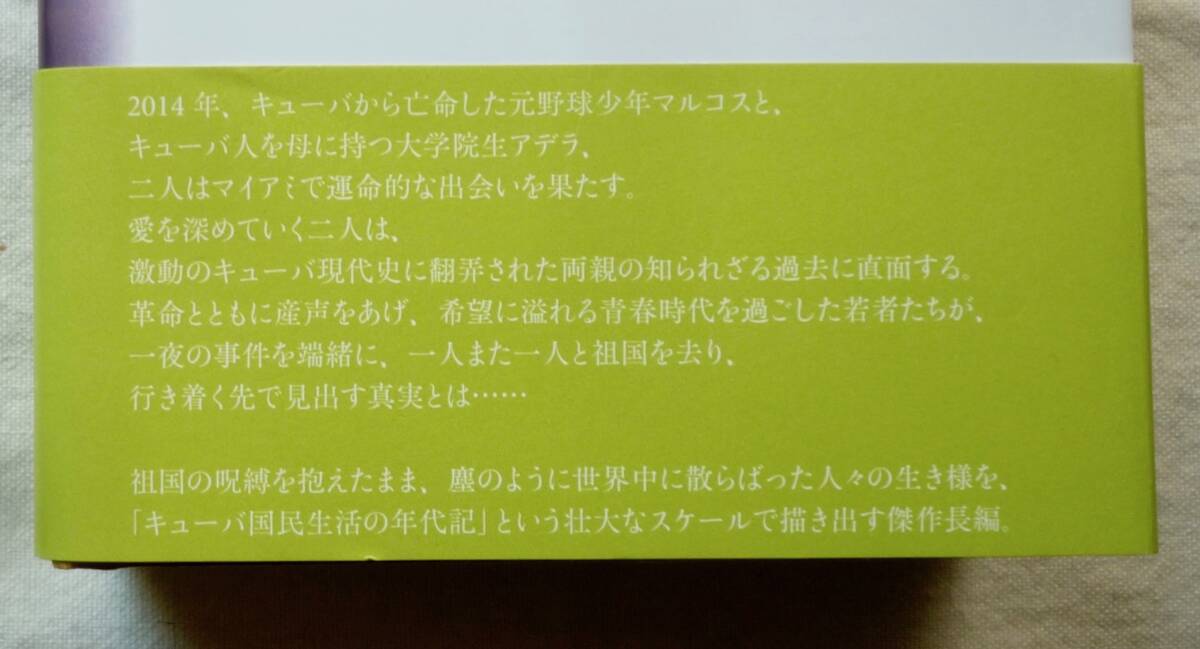 2014 年、キューバから亡命した元野球少年マルコスと、
キューバ人を母に持つ大学院生アデラ、
二人はマイアミで運命的な出会いを果たす。
愛を深めていく二人は、
激動のキューバ現代史に翻弄された両親の知られざる過去に直面する。
革命とともに産声をあげ、希望に溢れる青春時代を過ごした若者たちが、
一夜の事件を端緒に、一人また一人と祖国を去り、
行き着く先で見出す真実とは……
祖国の呪縛を抱えたまま、塵のように世界中に散らばった人々の生き様を、
「キューバ国民生活の年代記」という壮大なスケールで描き出す傑作長編。